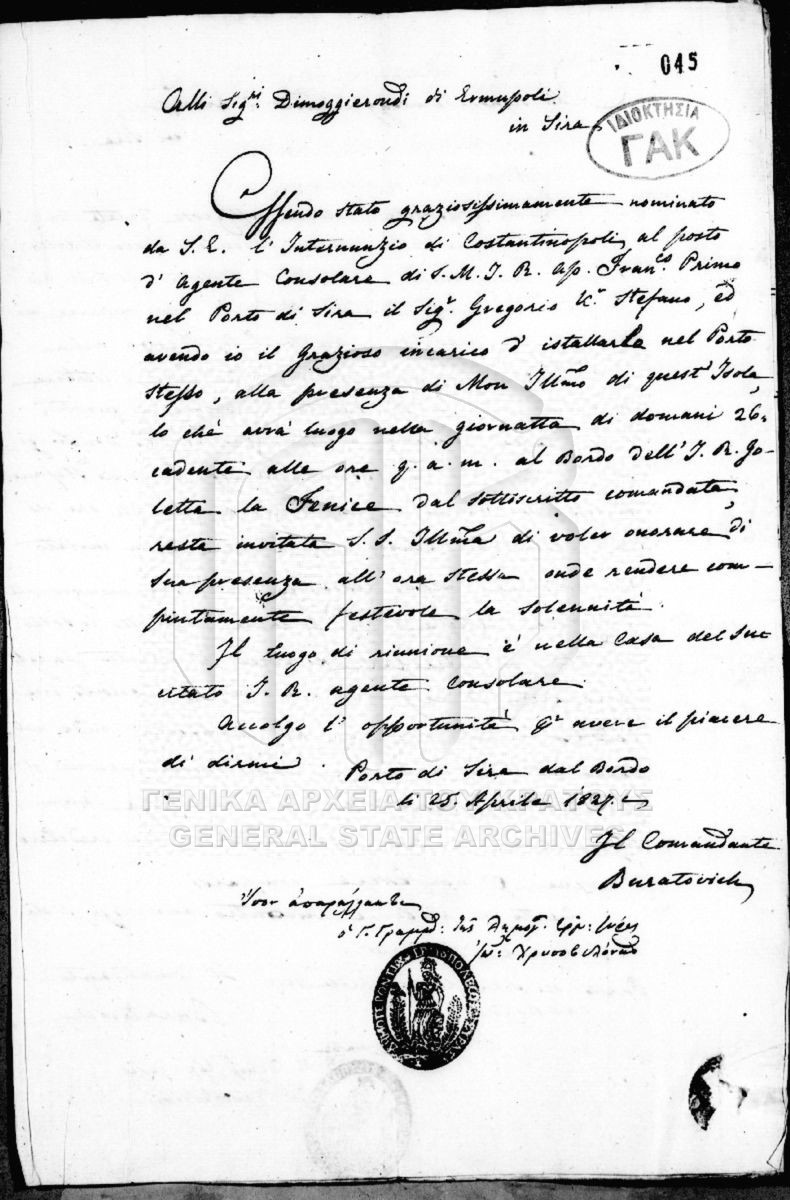 045
Alli Sigri. Dimoggierondi di Ermupoli
in Sira
ΙΔΙΟΚΤΗΣΙΑ
ΓΑΚ
Essendo stato graziosissimamente nominato
da S. E. l'Internunzio di Costantinopoli, al posto
d'Agente Consolare di S. M. I. R. Ap. Franco. Primo
nel Porto di Sira il Sigr. Gregorio Kr. Stefano, ed
avendo io il Grazioso incarico d'istallarlo nel Porto
stesso, alla presenza di Mon Illmo di quest'Isola,
lo chè avrà luogo nella giornatta di domani 26.
cadente alle ore 9. a. m. al Bordo dell'I. R. Go-
letta la Fenice dal sottiscritto comandata,
resta invitata S. S. Illma di voler onorare di
sua presenza all'ora stessa onde rendere com-
piutamente festevole la solennità.
Il luogo di riunione è nella Casa del sud
I. R. agente consolare.
Accolgo l'opportunità pr avere il piacere
di dirmi.
Porto di Sira dal Bordo
li 25. Aprile 1827.
ΓΕΝΙΚΑ ΑΡΧΕΙΑ ΤΟΥ ΚΡΑΤΟΥΣ
GENERAL STATE ARCHIVES
Il Comandante
Buratovich
Ἴσον ἀπαράλλακτον
ὁ Γ. Γραμμ: τῆς Δημογ. Ἑρμ: